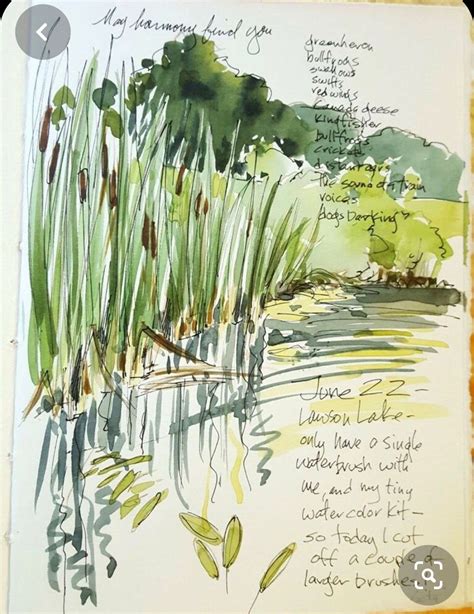 May harmony find you
greenheron
bullfrogs
swallows
swifts
redwings
Canada Geese
Kingfisher
bullfrogs
crickets
distant cars
The sound of a train
voices
dogs barking
June 22 –
Lawson Lake –
only have a single
waterbrush with
me, and my tiny
watercolor kit –
so today I cut
off a couple of
larger brushes